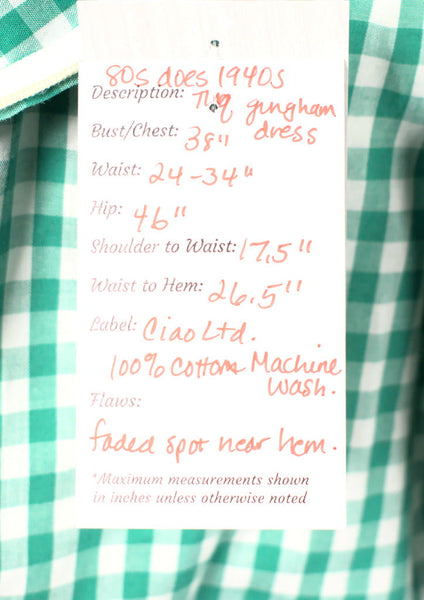 80s does 1940s
Description: gingham
Bust/Chest: 38" dress
Waist: 24-34"
Hip: 46"
Shoulder to Waist: 17.5"
Waist to Hem: 26.5"
Label: Ciao Ltd.
100% Cotton Machine
Wash.
Flaws:
faded spot near hem.
*Maximum measurements shown
in inches unless otherwise noted